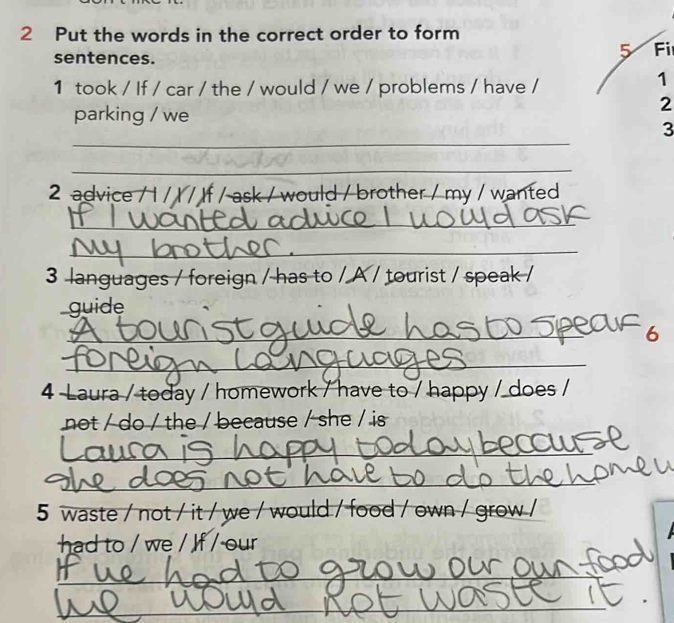 2 Put the words in the correct order to form
sentences.
1 took / If / car / the / would / we / problems / have /
parking / we
2 advice / I / I / If / ask / would / brother / my / wanted
If I wanted aduice I would ask
My brother.
3 languages / foreign / has to / A / tourist / speak /
guide
A tourist guide has to speak
foreign languages
4 Laura / today / homework / have to / happy / does /
not / do / the / because / she / is
Laura is happy today because
she does not have to do the homew
5 waste / not / it / we / would / food / own / grow /
had to / we / If / our
If we had to grow our own food
we would not waste it.
5 Fi
1
2
3
6